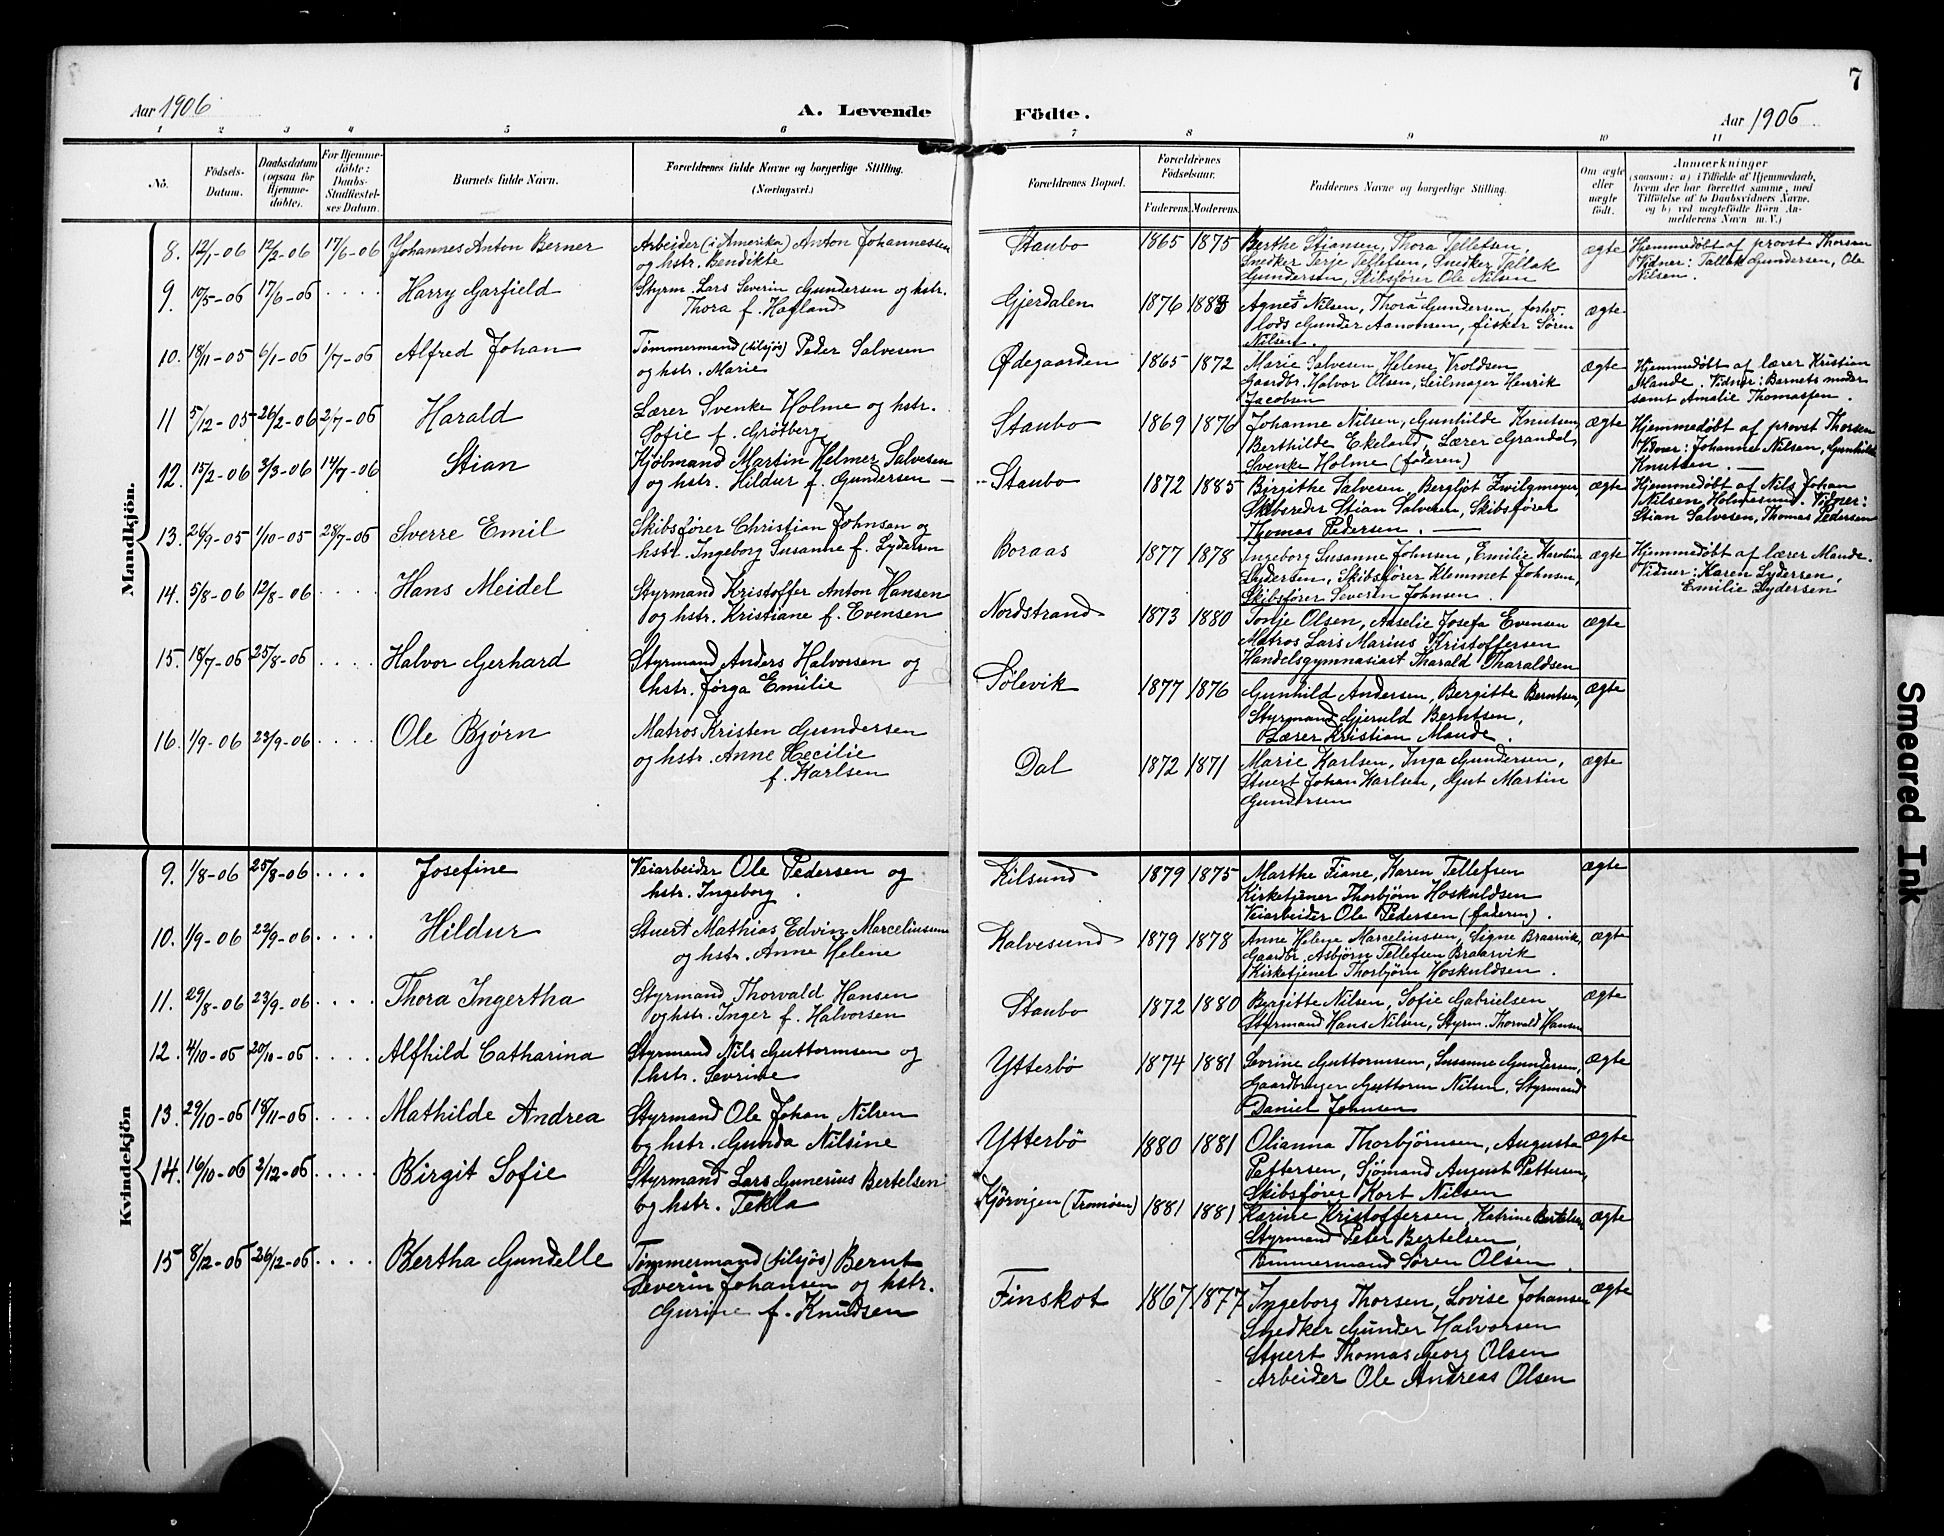 7
Aar 1906
A. Levende
Födte.
Aar 1906
1 2 3 4 5 6 7 8 9 10 11
No.
Födsels-Datum.
Daabsdatum (ogsaa for Hjemme-döbte).
For Hjemme-döbte: Daabs-Stadfæstel-ses Datum.
Barnets fulde Navn.
Forældrenes fulde Navne og borgerlige Stilling.
(Næringsvei.)
Forældrenes Bopæl.
Forældrenes Födselsaar.
Faderens. Moderens.
Faddernes Navne og borgerlige Stilling.
Om ægte eller uægte födt.
Anmærkninger
(saasom: a) i Tilfælde af Hjemmedaab, hvem der har forrettet samme, med Tilföielse af to Daabsvidners Navne, og b) ved uægtefödte Börn An-melderens Navn m. V.)
Mandkjön.
8. 12/1-06 12/2-06 17/6-06 Johannes Anton Berner
Arbeider (i Amerika) Anton Johannessen
og hstr. Bendikte
Staubo 1865 1875
Berthe Stiansen, Thora Tellefsen,
Snedker Terje Tellefsen, Snedker Tallak
Gundersen, Skibsfører Ole Nilsen
ægte
Hjemmedøbt af provst Thorsen
Vidner: Tallak Gundersen, Ole
Nilsen.
9. 10/5-06 17/6-06 . . . . Harry Garfield
Styrm. Lars Severin Gundersen og hstr.
Thora f. Hafland
Gjerdalen 1876 1883
Agnes Nilsen, Thora Gundersen, forhv.
lods Gunder Aanonsen, fisker Søren
Nilsen.
ægte
10. 18/11-05 6/1-06 1/7-06 Alfred Johan
Tømmermand (tilsjøs) Peder Salvesen
og hstr. Marie
Ødegaarden 1865 1872
Marie Salvesen, Helene Vroldsen
Gaardbr. Halvor Olsen, Seilmager Henrik
Jacobsen
ægte
Hjemmedøbt af lærer Kristian
Mande. Vidner: Barnets moder
samt Amalie Thomassen.
11 5/12-05 26/2-06 2/7-06 Harald
Lærer Svenke Holme og hstr.
Sofie f. Grøtberg
Staubo 1869 1876
Johanne Nilsen, Gunhilde Knutsen,
Berthilde Ekeland, Lærer Grandel,
Svenke Holme (faderen)
ægte
Hjemmedøbt af provst Thorsen
Vidner: Johanne Nilsen, Gunhilde
Knutsen.
12. 15/2-06 3/3-06 14/7-06 Stian
Kjøbmand Martin Helmer Salvesen
og hstr. Hildur f. Gundersen
Staubo 1872 1885
Birgithe Salvesen, Bergljot Zwilgmeyer,
Skibsreder Stian Salvesen, Skibsfører
Thomas Pedersen.
ægte
Hjemmedøbt af Nils Johan
Nilsen, Holmesund. Vidner:
Stian Salvesen, Thomas Pedersen
13. 26/9-05 1/10-05 28/7-06 Sverre Emil
Skibsfører Christian Johnsen og
hstr. Ingeborg Susanne f. Lydersen
Boraas 1877 1878
Ingeborg Susanne Johnsen, Emilie Karoline
Lydersen, Skibsfører Klemmet Johnsen,
Skibsfører Severin Johnsen.
ægte
Hjemmedøbt af lærer Mande.
Vidner: Karen Lydersen,
Emilie Lydersen
14. 5/8-06 12/8-06 . . . . Hans Meidel
Styrmand Kristoffer Anton Hansen
og hstr. Kristiane f. Evensen
Nordstrand 1873 1880
Tonje Olsen, Aaselie Josefa Evensen
Matros Lars Marius Kristoffersen
Handelsgymnasiast Tharald Tharaldsen
ægte
15. 18/7-06 25/8-06 . . . . Halvor Gerhard
Styrmand Anders Halvorsen og
hstr. Jørga Emilie
Sølevik 1877 1876
Gunhild Andersen, Bergitte Berntsen,
Styrmand Gjeruld Berntsen,
Lærer Kristian Mande.
ægte
16. 1/9-06 23/9-06 . . . . Ole Bjørn
Matros Kristen Gundersen
og hstr. Anne Cecilie
f. Karlsen
Dal 1872 1871
Marie Karlsen, Inga Gundersen,
Stuert Johan Karlsen, Gut Martin
Gundersen
ægte
Kvindekjön
9. 1/8-06 25/8-06 . . . . Josefine
Veiarbeider Ole Pedersen og
hstr. Ingeborg.
Kilsund 1879 1875
Marthe Fiane, Karen Tellefsen
Kirketjener Thorbjørn Hoskuldsen
Veiarbeider Ole Pedersen (faderen).
ægte
10. 1/9-06 22/9-06 . . . . Hildur
Stuert Mathias Edvin Marceliussen
og hstr. Anne Helene
Kalvesund 1879 1878
Anne Helene Marceliussen, Signe Braarvik,
Gaardbr. Asbjørn Tellefsen Braarvik
Kirketjener Thorbjørn Hoskuldsen.
ægte
11. 29/8-06 23/9-06 . . . . Thora Ingertha
Styrmand Thorvald Hansen
og hstr. Inger f. Halvorsen
Staubo 1872 1880
Birgitte Nilsen, Sofie Gabrielsen
Styrmand Hans Nilsen, Styrm. Thorvald Hansen
ægte
12. 4/10-06 20/10-06 . . . . Alfhild Catharina
Styrmand Nils Guttormsen og
hstr. Sevrine
Ytterbø 1874 1881
Sevrine Guttormsen, Susanne Gundersen,
Gaardbruger Guttorm Nilsen, Styrmand
Daniel Johnsen
ægte
13. 29/10-06 18/11-06 . . . . Mathilde Andrea
Styrmand Ole Johan Nilsen
og hstr. Gunda Nilsine
Ytterbø 1880 1881
Olianna Thorbjørnsen, Augusta
Pettersen, Sjømand August Pettersen,
Skibsfører Kort Nilsen
ægte
14. 16/10-06 2/12-06 . . . . Birgit Sofie
Styrmand Lars Gunerius Bertelsen
og hstr. Tekla
Kjørvigen (Tromøen) 1881 1881
Karine Kristoffersen, Katrine Bertelsen
Styrmand Peter Bertelsen,
Tømmermand Søren Olsen.
ægte
15 8/12-06 26/12-06 . . . . Bertha Gundelle
Tømmermand (tilsjøs) Bernt
Severin Johansen og hstr.
Gurine f. Knudsen
Finskot 1867 1877
Ingeborg Thorsen, Lovise Johansen
Snedker Gunder Halvorsen
Stuert Thomas Georg Olsen
Arbeider Ole Andreas Olsen
ægte
Smeared Ink